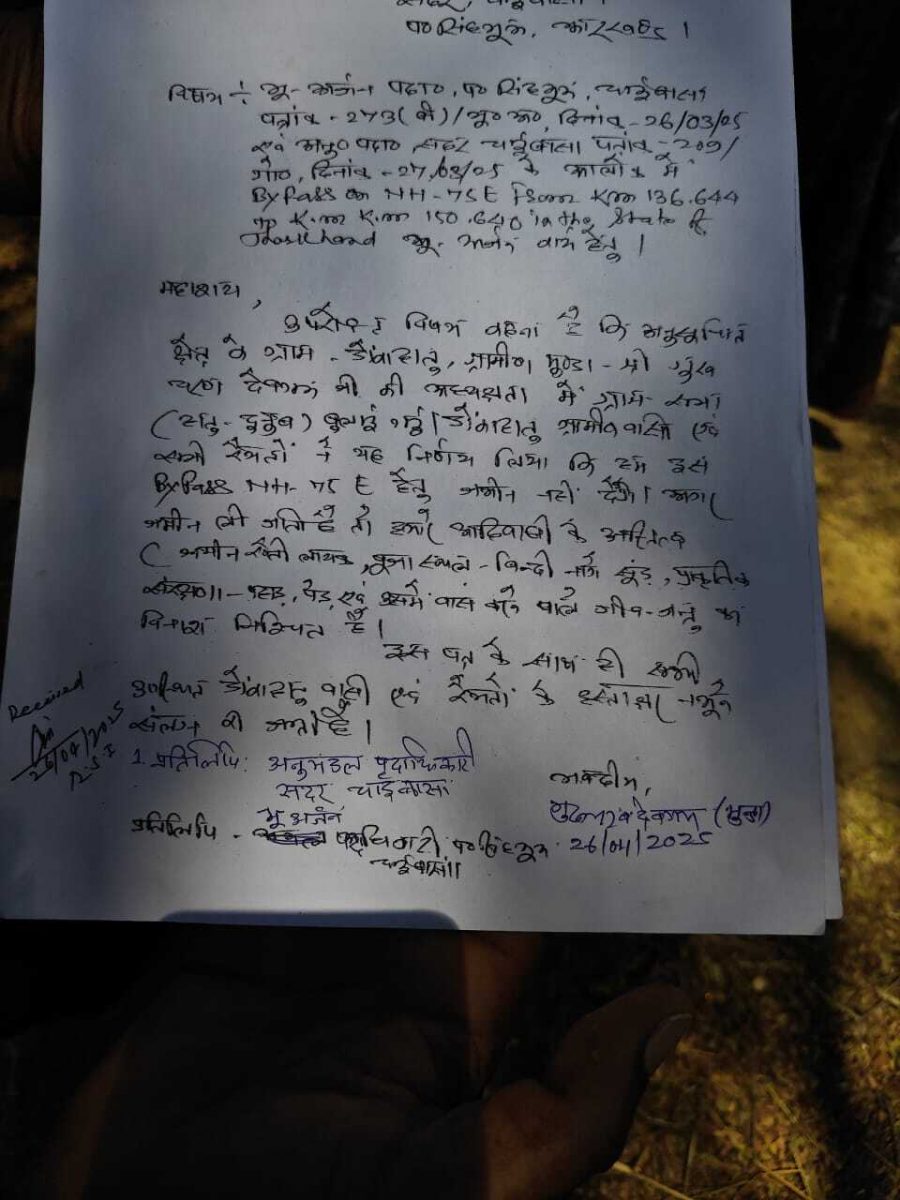 सदर, चाईबासा।
प० सिंहभूम, झारखण्ड।
विषय :- भू-अर्जन पदा०, प० सिंहभूम, चाईबासा
पत्रांक - 273(बी)/भू०अ०, दिनांक - 26/03/05
एवं अनु० पदा० सदर चाईबासा पत्रांक - 209/
गो०, दिनांक - 27/03/05 के आलोक में
ByPass on NH-75E from Km 136.644
Km 150.640 in the State of
Jharkhand भू-अर्जन कार्य हेतु।
महाशय,
उपरोक्त विषय कहना है कि अनुसूचित
क्षेत्र के ग्राम - डोंवासातु, ग्रामीण मुण्डा - श्री
देवगम जी की अध्यक्षता में ग्राम-सभा
बुलाई गई। डोंवासातु ग्रामीण वासी एवं
सभी रैयतों ने यह निर्णय लिया कि हम इस
ByPass NH-75E हेतु जमीन नहीं देंगे। अगर
जमीन ली जाती है तो हमारे आदिवासी के अस्तित्व
(जमीन खेती लायक, पूजा स्थल - , प्राकृतिक
संरक्षण - पहाड़, पेड़, एवं उसमें वास करने वाले जीव-जन्तु का
विनाश निश्चित है।
इस पत्र के साथ ही सभी
उपस्थित डोंवासातु वासी एवं रैयतों के हस्ताक्षर
संलग्न की जाती है।
Received
26/04/2025
1. प्रतिलिपि: अनुमंडल पदाधिकारी
सदर चाईबासा
भवदीय,
देवगम (मुण्डा)
26/04/2025
भू अर्जन
प्रतिलिपि - पदाधिकारी, प० सिंहभूम
चाईबासा।